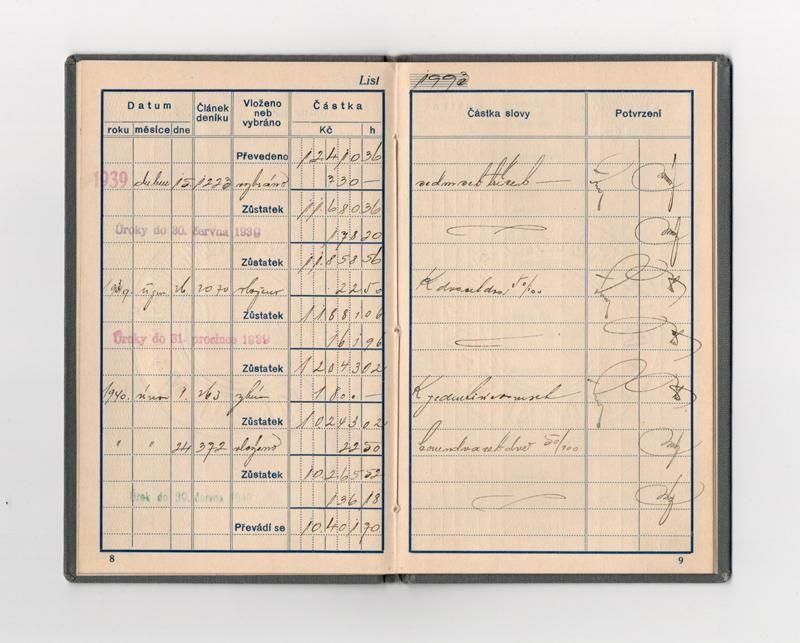 List 1993
Datum Článek deníku Vloženo neb vybráno Částka Částka slovy Potvrzení
roku měsíce dne Kč h
Převedeno 12410 36
1939 dubna 15. 1223 vybráno 730 — sedmsettřicet —
Zůstatek 11680 36
Úroky do 30. června 1939 178 20
Zůstatek 11858 56
1939. října 26. 2070 vloženo 22 50 K dvacetdva 50/100
Zůstatek 11881 06
Úroky do 31. prosince 1939 161 96
Zůstatek 12043 02
1940. února 263 1800 —
Zůstatek 10243 02
" " 24 372 vloženo 22 50 50/100
Zůstatek 10265 52
Úrok do 30. června 1940 136 18
Převádí se 10401 70
8 9